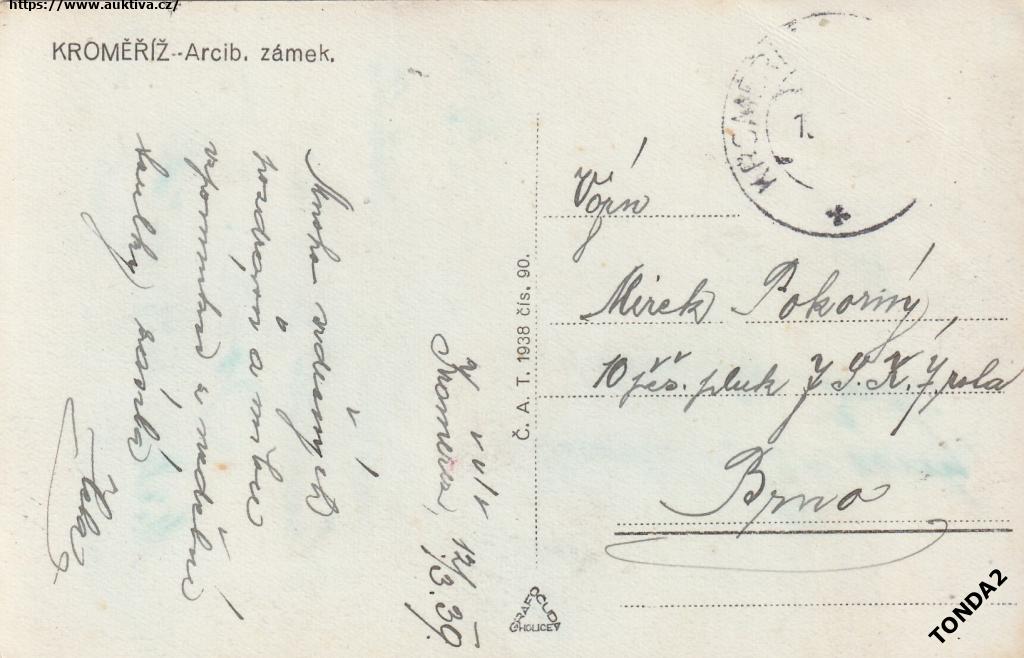 https://www.auktiva.cz/
KROMĚŘÍŽ--Arcib. zámek.
Mnoho srdečných
pozdravů a
vzpomínku z nedělní
toulky zasílá
Kroměříž, 12/3.39.
Č. A. T. 1938 čís. 90.
GRAFO ČUDA
HOLICE
KROMĚŘÍŽ
1.
Vojín
Mirek Pokorný,
10 pěš. pluk J. S. K.
Brno
TONDA2